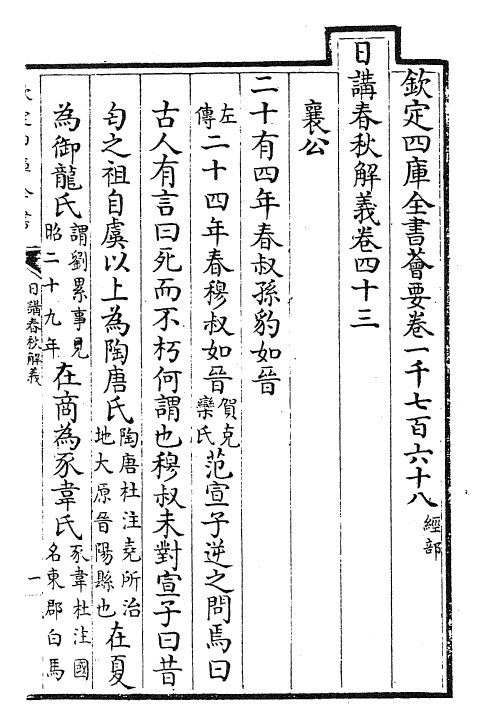 欽定四庫全書薈要卷一千七百六十八 經部
日講春秋解義卷四十三
襄公
二十有四年春叔孫豹如晉
左傳二十四年春穆叔如晉賀克欒氏范宣子逆之問焉曰
古人有言曰死而不朽何謂也穆叔未對宣子曰昔
匄之祖自虞以上為陶唐氏陶唐杜注堯所治地大原晉陽縣也在夏
為御龍氏謂劉累事見昭二十九年在商為豕韋氏豕韋杜注國名東郡白馬
日講春秋解義
一